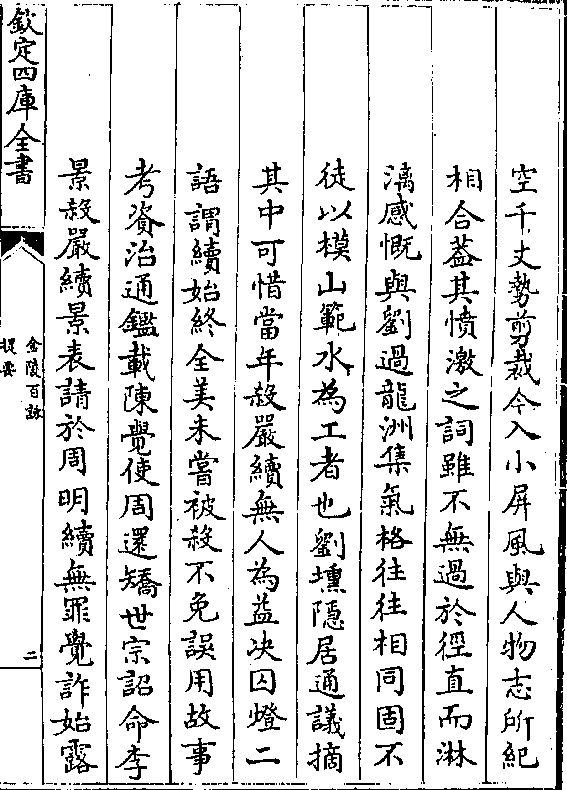 空千丈勢剪裁今入小屏風與人物志所紀
相合葢其憤激之詞雖不無過於徑直而淋
漓感慨與劉過龍洲集氣格往往相同固不
徒以模山範水為工者也劉壎隱居通議摘
其中可惜當年殺嚴續無人為益决囚燈二
語謂續始終全美未嘗被殺不免誤用故事
考資治通鑑載陳覺使周還矯世宗詔命李
景殺嚴續景表請於周明續無罪覺詐始露
欽定四庫全書
金陵百詠
提要
二